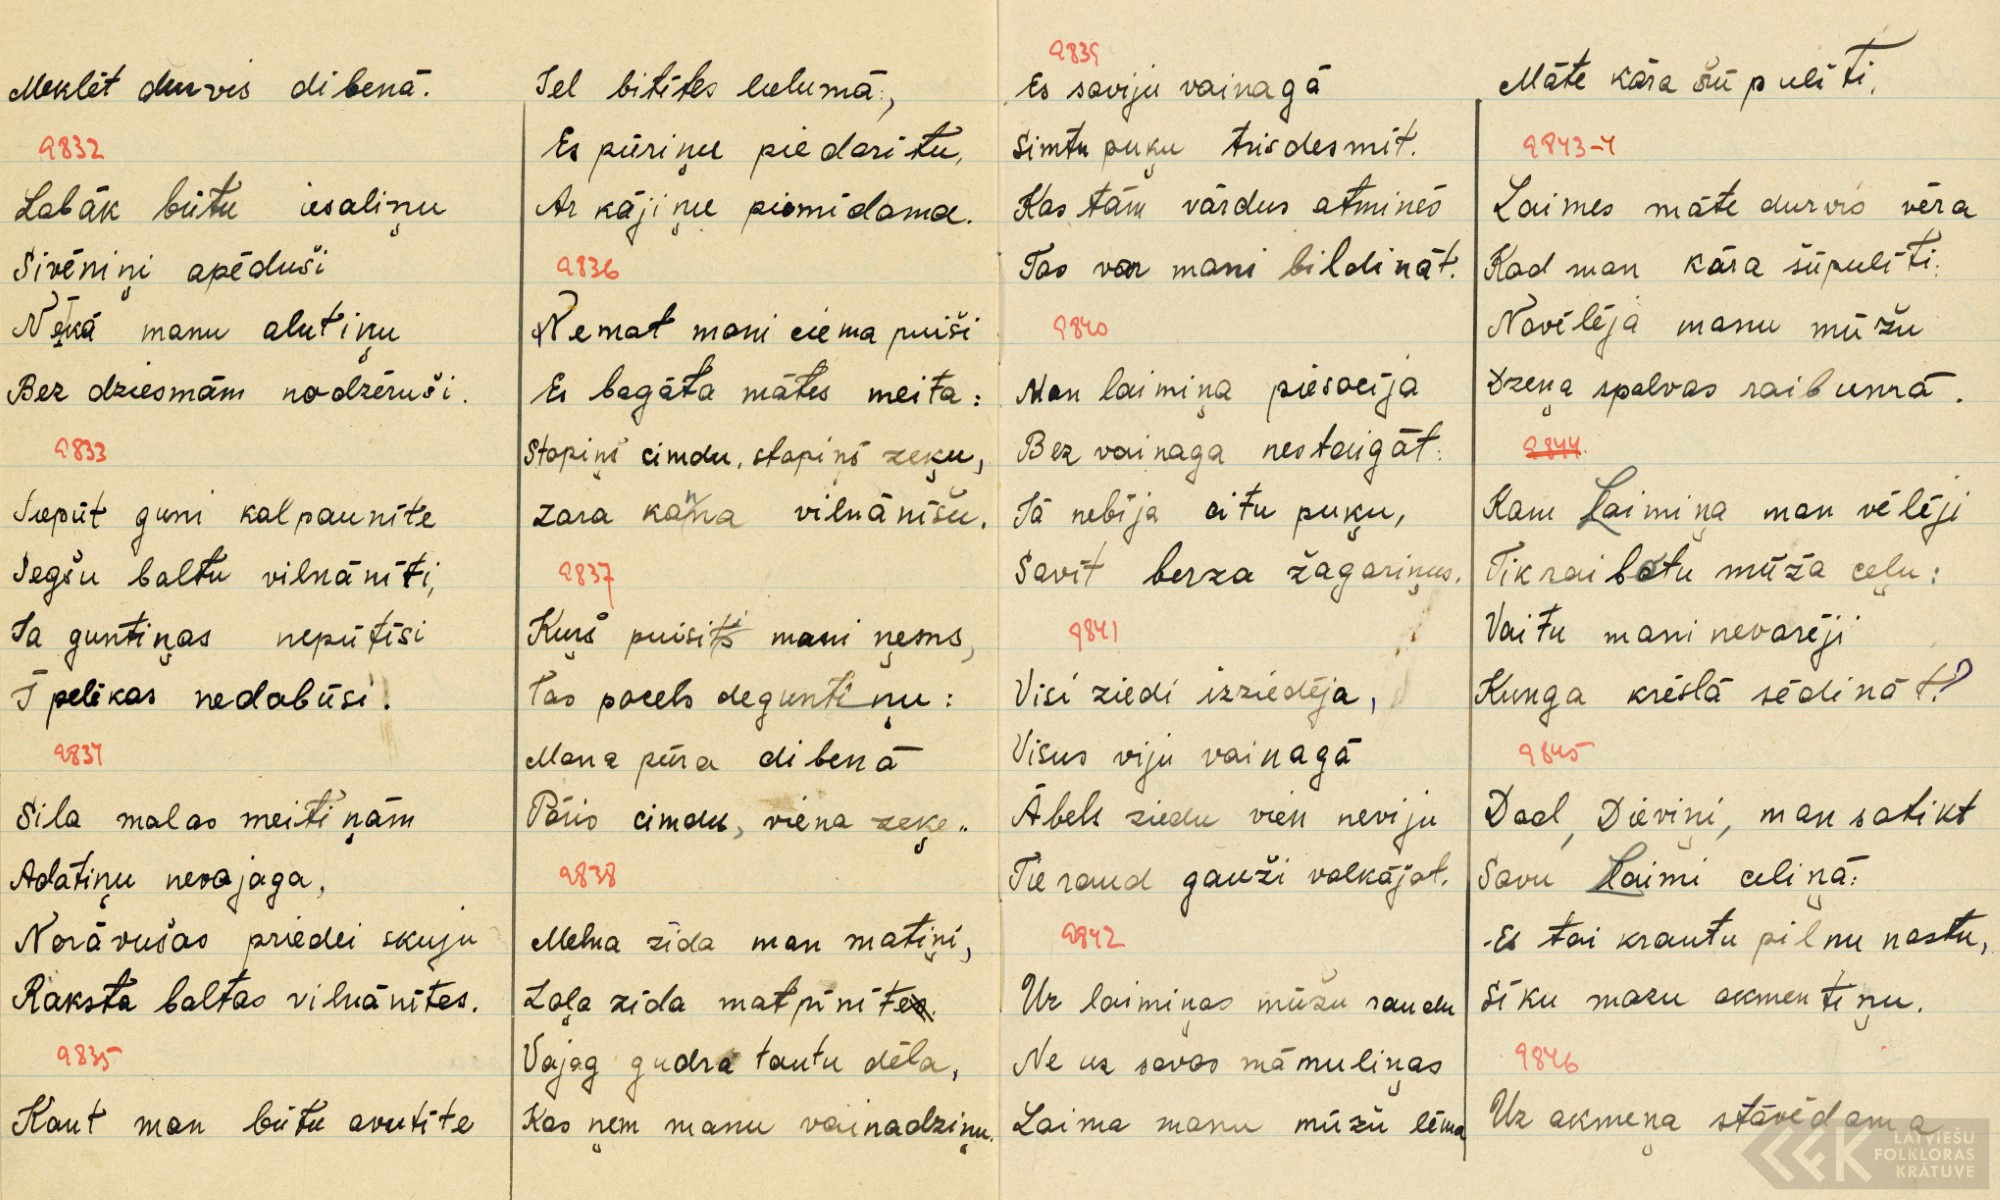 Meklēt durvis dibenā.
9832
Labāk būtu iesaliņu
Sivēniņi apēduši
Nekā manu alutiņu
Bez dziesmām nodzēruši.
9833
Iepūt guni kalpaunīte
Segšu baltu vilnānīti,
Ja guntiņas nepūtīsi
I pelēkas nedabūsi!
9834
Sila malas meitiņām
Adatiņu nevajaga,
Norāvušas priedei skuju
Raksta baltas vilnānītes.
9835
Kaut man būtu avutīte
Tel bitītes lielumā,
Es pūriņu piedarītu,
Ar kājiņu piemīdama.
9836
Nemat mani ciema puiši
Es bagāta mātes meita:
Stapiņš cimdu, stapiņš zeķu,
Zara kanna vilnānīšu.
9837
Kuŗš puisītis mani ņems,
Tas pacels deguntiņu:
Mana pūra dibenā
Pāris cimdu, viena zeķe..
9838
Melna zīda man matiņi,
Zaļa zīda matpīnīte
Vajag gudra tautu dēla,
Kas ņem manu vainadziņu.
9839
Es saviju vainagā
Simtu puķu trīsdesmit.
Kas tām vārdus atminēs
Tas var mani bildināt.
9840
Man laimiņa piesacīja
Bez vainaga nestaigāt:
Jā nebija citu puķu,
Savīt berza žagariņus.
9841
Visi ziedi izziedēja,
Visus viju vainagā
Ābels ziedu vien neviju
Tie raud gauži valkājot.
9842
Uz laimiņas mūžu raudu
Ne uz savas māmuliņas
Laima manu mūžu lēma
Māte kāra šūpulīti.
9843-4
Laimes māte durvis vēra
Kad man kāra šūpulīti:
Novēlēja manu mūžu
Dzeņa spalvas raibumā.
9844
Kam Laimiņa man vēlēji
Tik raibotu mūža ceļu:
Vai tu mani nevarēji
Kunga krēslā sēdināt?
9845
Dod, Dieviņi, man satikt
Savu Laimi celiņā:
Es tai krautu pilnu nastu,
Sīku mazu akmentiņu.
9846
Uz akmeņa stāvēdama
LATVIEŠU
FOLKLORAS
KRĀTUVE